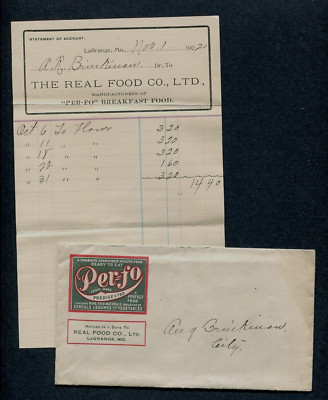 STATEMENT OF ACCOUNT.
LaGrange, Mo., Nov. 1 1902
A. R. Brinkman Dr. To
THE REAL FOOD CO., LTD.,
MANUFACTURERS OF
"PER-FO" BREAKFAST FOOD.
Oct 6 To Flour 3 20
" 11 " " 3 20
" 18 " " 3 20
" 22 " " 1 60
" 31 " " 3 20
14 40
A COMBINED CONDENSED HEALTH FOOD
READY TO EAT
Per-fo
TRADE MARK
PREDIGESTED
A PERFECT FOOD
CEREALS LEGUMES AND VEGETABLES
Return in 5 Days To
REAL FOOD CO., LTD.
LaGRANGE, MO.
Brinkman
City.